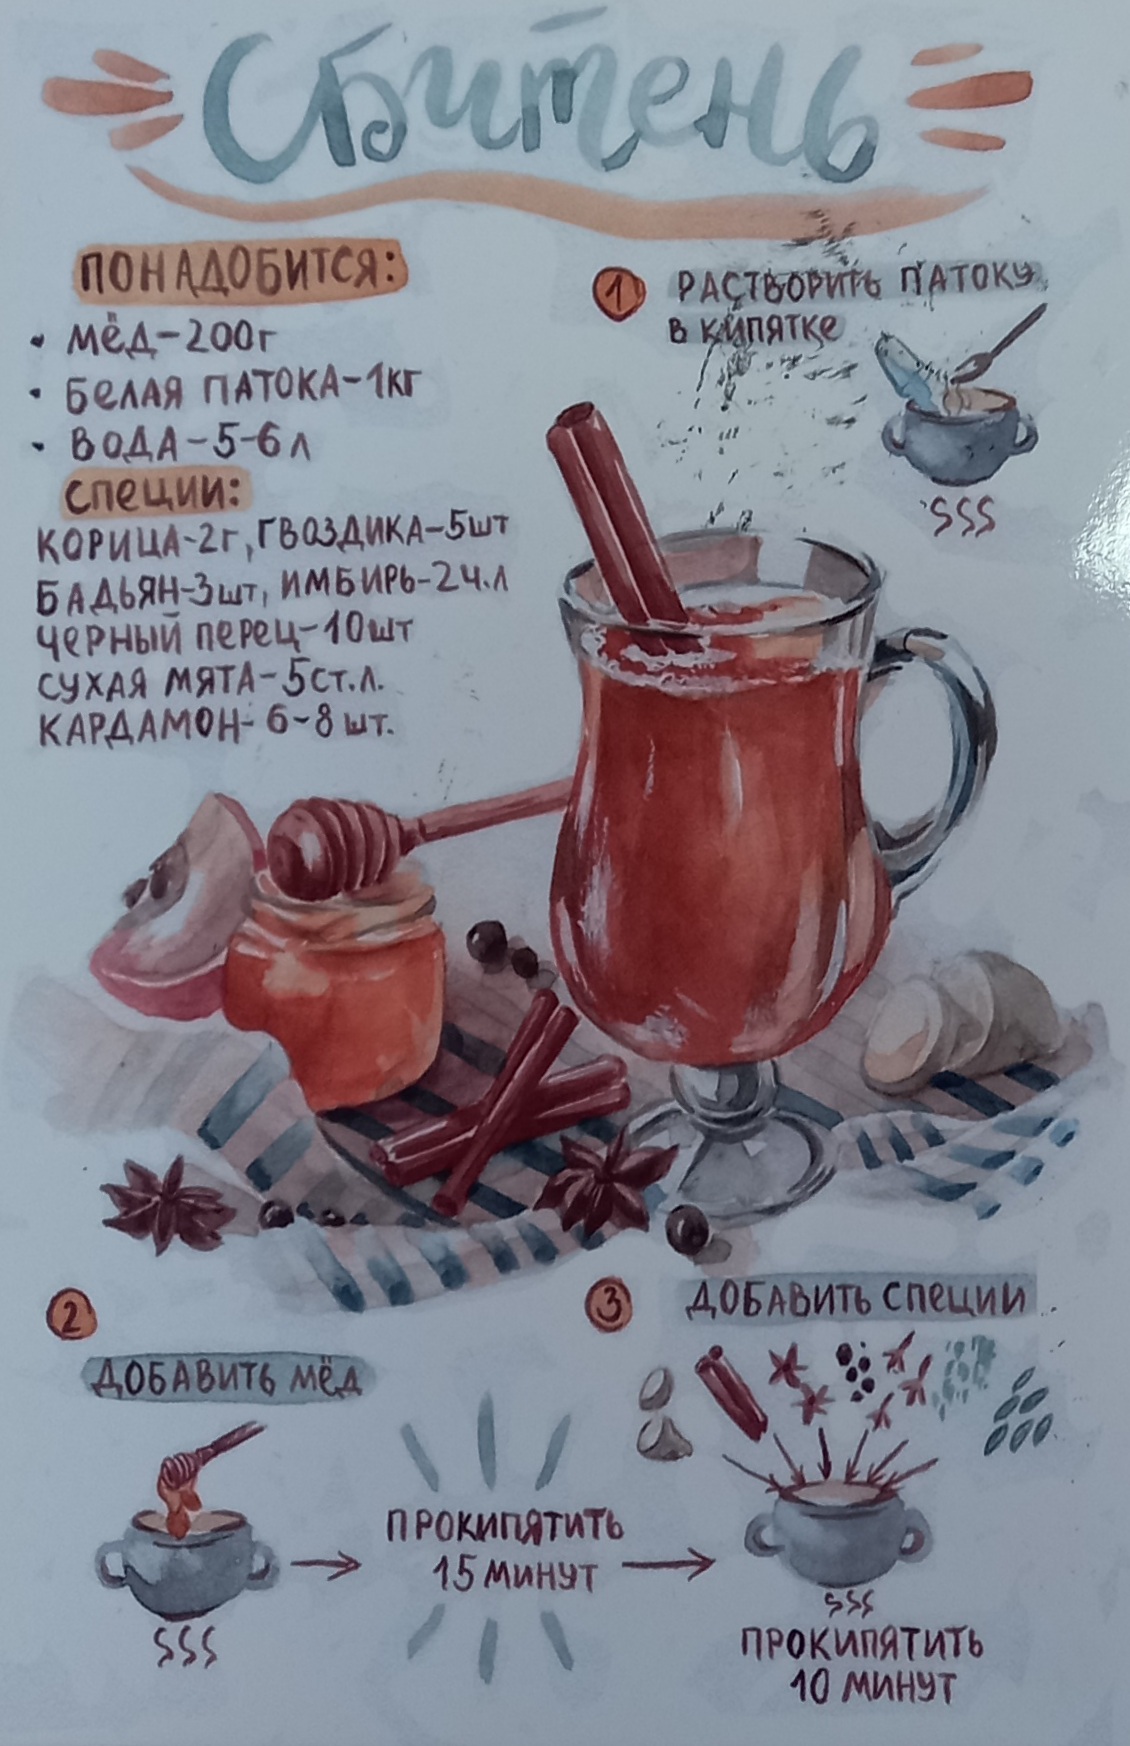 Сбитень
ПОНАДОБИТСЯ:
• МЁД-200г
• БЕЛАЯ ПАТОКА-1КГ
• ВОДА-5-6 Л
СПЕЦИИ:
КОРИЦА-2г, ГВОЗДИКА-5шт
БАДЬЯН-3шт, ИМБИРЬ-2ч.л
ЧЕРНЫЙ ПЕРЕЦ-10шт
СУХАЯ МЯТА-5СТ.Л.
КАРДАМОН-6-8 шт.
1 РАСТВОРИТЬ ПАТОКУ
В КИПЯТКЕ
2
ДОБАВИТЬ МЁД
ПРОКИПЯТИТЬ
15 МИНУТ
3 ДОБАВИТЬ СПЕЦИИ
ПРОКИПЯТИТЬ
10 МИНУТ